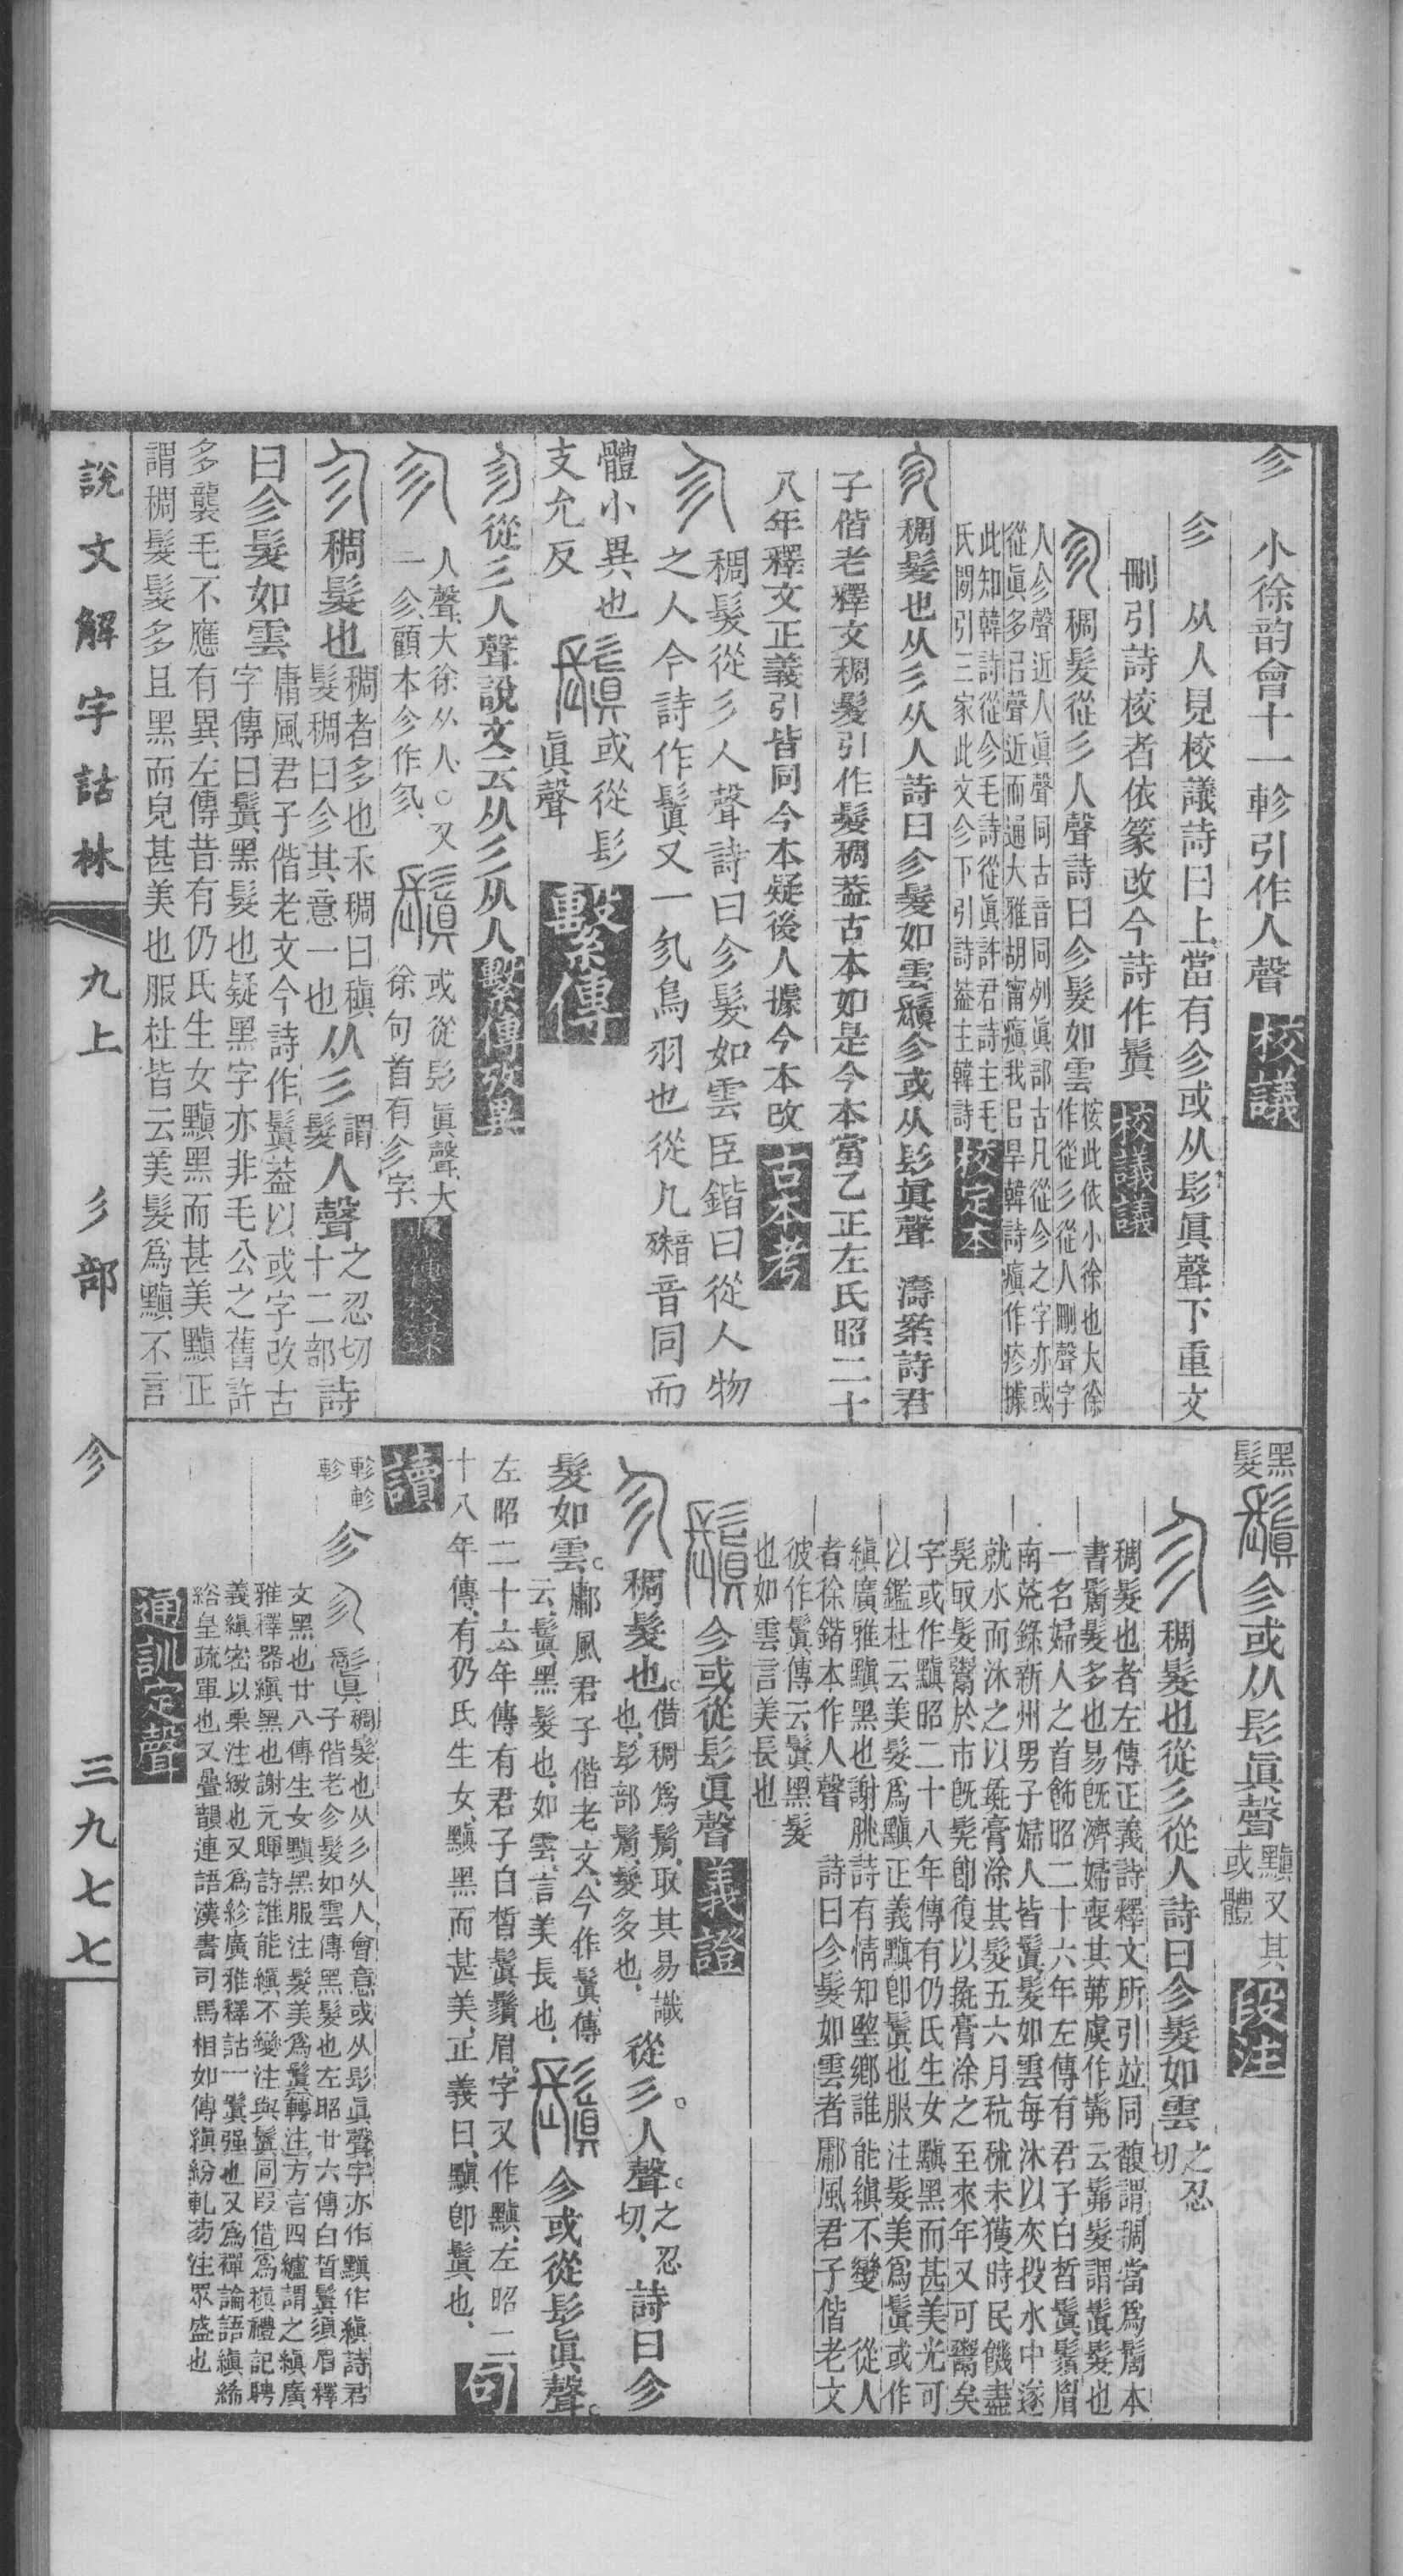 㐱　小徐韵會十一軫引作人聲　校議
㐱　从人見校議詩曰上當有㐱或从髟眞聲下重文
刪引詩校者依篆改今詩作鬒　校議議
稠髮從彡人聲詩曰㐱髮如雲
按此依小徐也大徐
作從彡從人刪聲字
人㐱聲近人眞聲同古音同列眞部古凡從㐱之字亦或
從眞多㠯聲近而通大雅胡甯瘨我㠯旱韓詩瘨作疹據
此知韓詩從㐱毛詩從眞許君詩主毛
氏閒引三家此文㐱下引詩葢主韓詩　校定本
稠髮也从彡从人詩曰㐱髮如雲鬒㐱或从髟眞聲　濤案詩君
子偕老釋文稠髮引作髮稠葢古本如是今本當乙正左氏昭二十
八年釋文正義引皆同今本疑後人據今本改　古本考
稠髮從彡人聲詩曰㐱髮如雲臣鍇曰從人物
之人今詩作鬒又一㐱鳥羽也從几音殊音同而
體小異也　鬒或從髟
支允反　眞聲　繫傳
從彡人聲說文云从彡从人　繫傳攷異
人聲大徐从人○又
一㐱顧本㐱作㐱
鬒或從髟眞聲大
徐句首有㐱字　繫傳校錄
稠髮也
稠者多也禾稠曰稹
髮稠曰㐱其意一也
从彡
謂
髮
人聲
之忍切
十二部
詩
曰㐱髮如雲
庸風君子偕老文今詩作鬒葢以或字改古
字傳曰鬒黑髮也疑黑字亦非毛公之舊許
多襲毛不應有異左傳昔有仍氏生女黰黑而甚美黰正
謂稠髮髮多且黑而皃甚美也服杜皆云美髮爲黰不言
黑
髮
鬒㐱或从髟眞聲
黰又其
或體
段注
稠髮也從彡從人詩曰㐱髮如雲
之忍
切
稠髮也者左傳正義詩釋文所引竝同馥謂稠當爲鬜本
書鬜髮多也易旣濟婦喪其茀虞作髴云髴髮謂鬒髮也
一名婦人之首飾昭二十六年左傳有君子白皙鬒鬚眉
南荒錄新州男子婦人皆鬒髮如雲每沐以灰投水中遂
就水而沐之以彘膏涂其髮五六月秔秫未獲時民饑盡
髡取髮鬻於市旣髡卽復以彘膏涂之至來年又可鬻矣
字或作黰昭二十八年傳有仍氏生女黰黑而甚美光可
以鑑杜云美髮爲黰正義黰卽鬒也服注髮美爲鬒或作
縝廣雅黰黑也謝朓詩有情知望鄉誰能縝不變　從人
者徐鍇本作人聲　詩曰㐱髮如雲者鄘風君子偕老文
彼作鬒傳云鬒黑髮
也如雲言美長也
鬒㐱或從髟眞聲　義證
稠髮也
借稠爲鬜取其易識
也髟部鬜髮多也
從彡人聲
之忍
切
詩曰㐱
髮如雲
鄘風君子偕老文今作鬒傳
云鬒黑髮也如雲言美長也
鬒㐱或從髟眞聲
左昭二十六年傳有君子白皙鬒鬚眉字又作黰左昭二
十八年傳有仍氏生女黰黑而甚美正義曰黰卽鬒也　句
讀
軫軫
軫
㐱
鬒稠髮也从彡从人會意或从髟眞聲字亦作黰作縝詩君
子偕老㐱髮如雲傳黑髮也左昭廿六傳白皙鬒須眉釋
文黑也廿八傳生女黰黑服注髮美爲鬒轉注方言四纑謂之縝廣
雅釋器縝黑也謝元暉詩誰能縝不變注與鬒同叚借爲稹禮記聘
義縝密以栗注緻也又爲紾廣雅釋詁一鬒强也又爲襌論語縝絺
綌皇疏單也又疊韻連語漢書司馬相如傳縝紛軋芴注眾盛也
通訓定聲
說文解字詁林　九上　彡部　㐱　三九七七